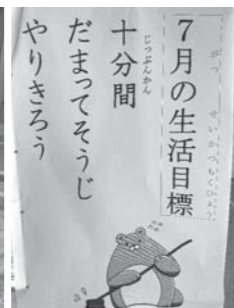 7月の生活目標
十分間
だまってそうじ
やりきろう